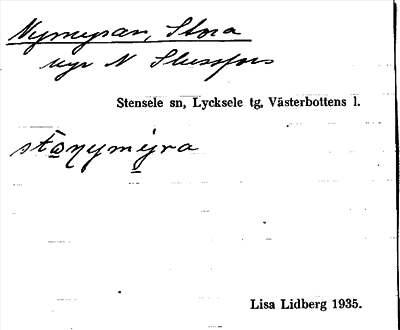 Nymyran, Stora
myr N Slussfors
Stensele sn, Lycksele tg, Västerbottens l.
stōnymy̱ra
Lisa Lidberg 1935.